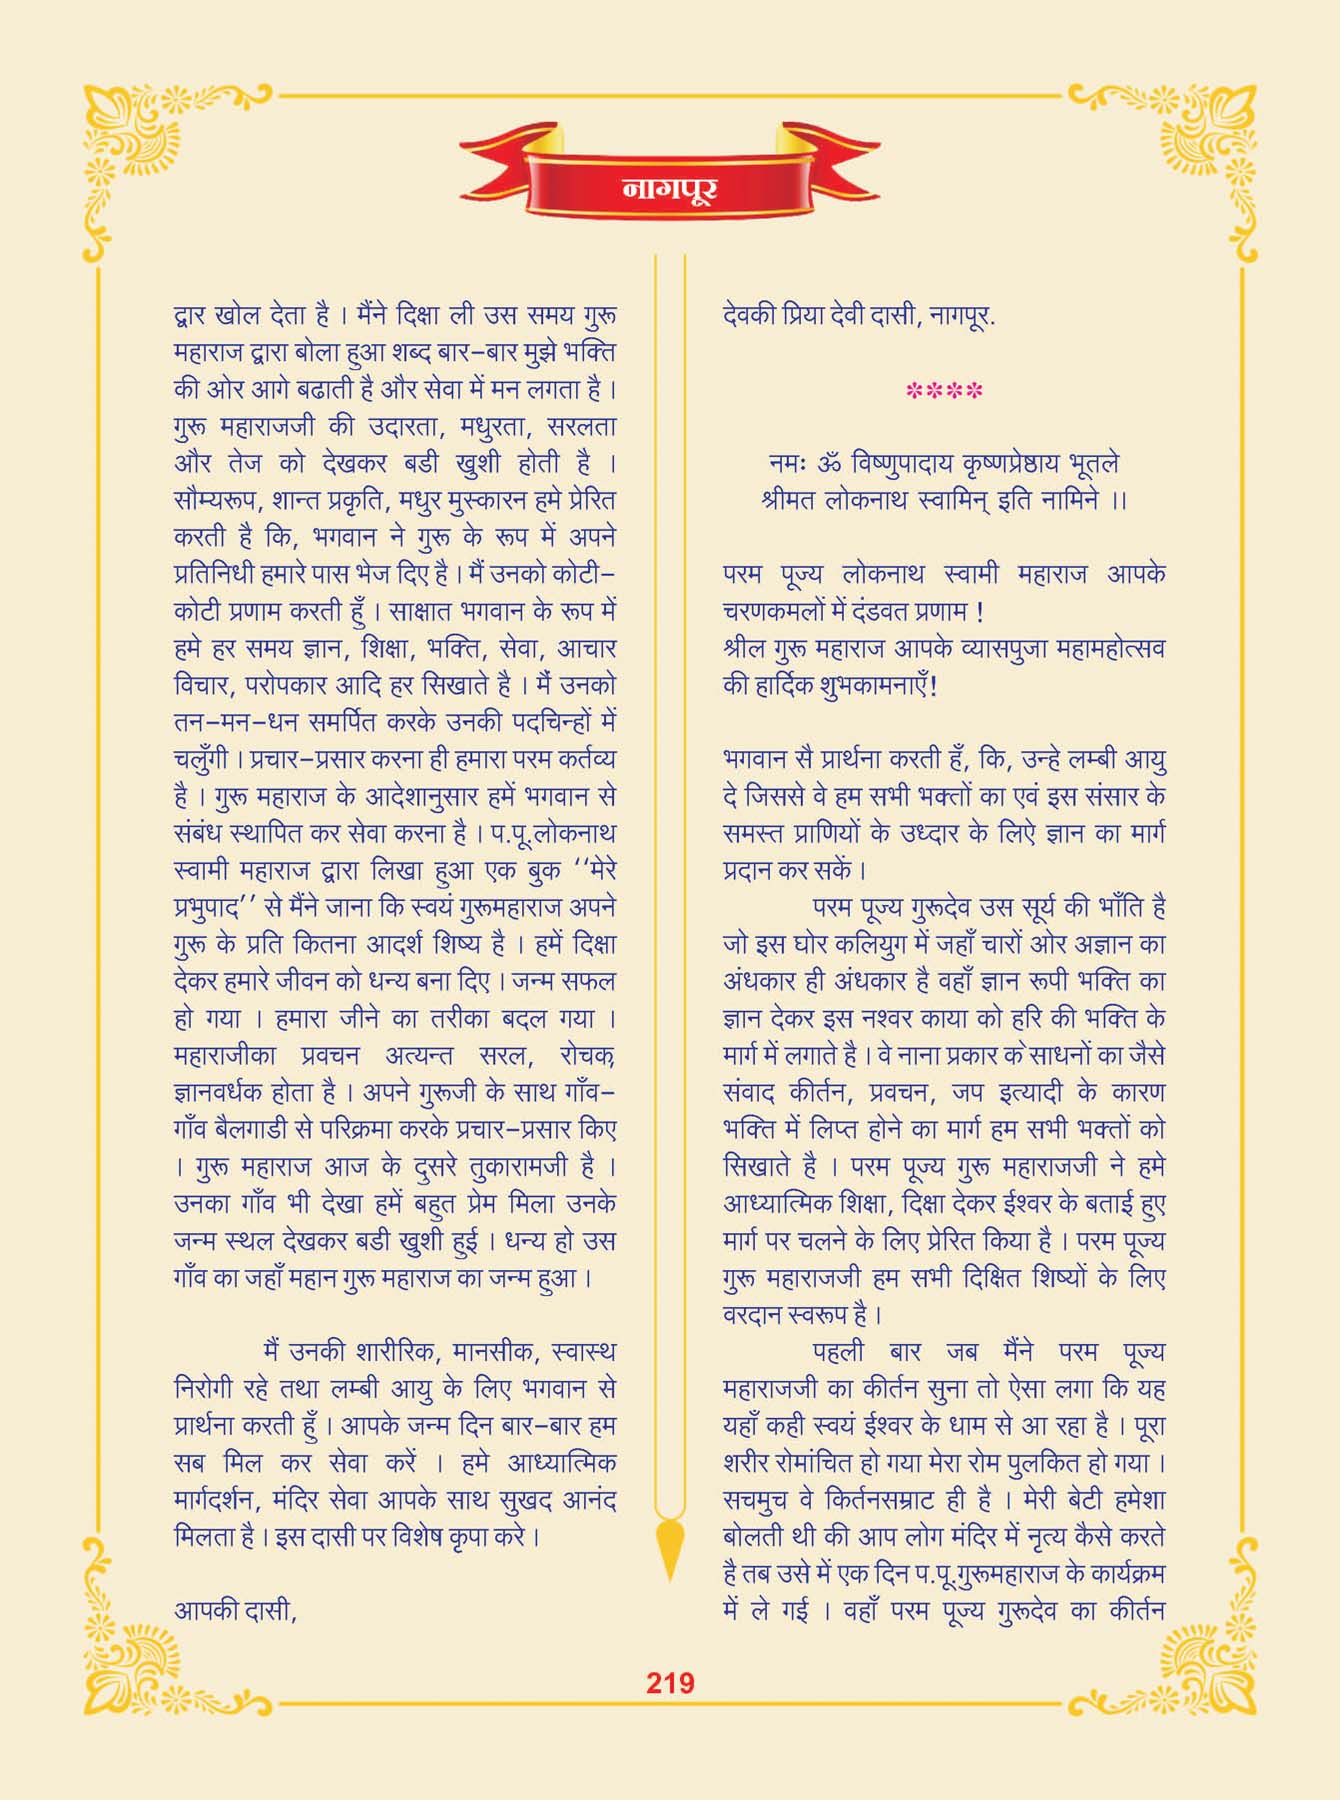 नागपूर
द्वार खोल देता है । मैंने दिक्षा ली उस समय गुरू
महाराज द्वारा बोला हुआ शब्द बार-बार मुझे भक्ति
की ओर आगे बढाती है और सेवा में मन लगता है ।
गुरू महाराजजी की उदारता, मधुरता, सरलता
और तेज को देखकर बडी खुशी होती है ।
सौम्यरूप, शान्त प्रकृति, मधुर मुस्कारन हमे प्रेरित
करती है कि, भगवान ने गुरू के रूप में अपने
प्रतिनिधी हमारे पास भेज दिए है । मैं उनको कोटी-
कोटी प्रणाम करती हुँ । साक्षात भगवान के रूप में
हमे हर समय ज्ञान, शिक्षा, भक्ति, सेवा, आचार
विचार, परोपकार आदि हर सिखाते है । मैं उनको
तन-मन-धन समर्पित करके उनकी पदचिन्हों में
चलुँगी । प्रचार-प्रसार करना ही हमारा परम कर्तव्य
है । गुरू महाराज के आदेशानुसार हमें भगवान से
संबंध स्थापित कर सेवा करना है । प.पू.लोकनाथ
स्वामी महाराज द्वारा लिखा हुआ एक बुक ‘‘मेरे
प्रभुपाद’’ से मैंने जाना कि स्वयं गुरूमहाराज अपने
गुरू के प्रति कितना आदर्श शिष्य है । हमें दिक्षा
देकर हमारे जीवन को धन्य बना दिए । जन्म सफल
हो गया । हमारा जीने का तरीका बदल गया ।
महाराजीका प्रवचन अत्यन्त सरल, रोचक,
ज्ञानवर्धक होता है । अपने गुरूजी के साथ गाँव-
गाँव बैलगाडी से परिक्रमा करके प्रचार-प्रसार किए
। गुरू महाराज आज के दुसरे तुकारामजी है ।
उनका गाँव भी देखा हमें बहुत प्रेम मिला उनके
जन्म स्थल देखकर बडी खुशी हुई । धन्य हो उस
गाँव का जहाँ महान गुरू महाराज का जन्म हुआ ।
मैं उनकी शारीरिक, मानसीक, स्वास्थ
निरोगी रहे तथा लम्बी आयु के लिए भगवान से
प्रार्थना करती हुँ । आपके जन्म दिन बार-बार हम
सब मिल कर सेवा करें । हमे आध्यात्मिक
मार्गदर्शन, मंदिर सेवा आपके साथ सुखद आनंद
मिलता है । इस दासी पर विशेष कृपा करे ।
आपकी दासी,
देवकी प्रिया देवी दासी, नागपूर.
****
नमः ॐ विष्णुपादाय कृष्णप्रेष्ठाय भूतले
श्रीमत लोकनाथ स्वामिन् इति नामिने ।।
परम पूज्य लोकनाथ स्वामी महाराज आपके
चरणकमलों में दंडवत प्रणाम !
श्रील गुरू महाराज आपके व्यासपुजा महामहोत्सव
की हार्दिक शुभकामनाएँ!
भगवान सै प्रार्थना करती हँ, कि, उन्हे लम्बी आयु
दे जिससे वे हम सभी भक्तों का एवं इस संसार के
समस्त प्राणियों के उध्दार के लिऐ ज्ञान का मार्ग
प्रदान कर सकें ।
परम पूज्य गुरूदेव उस सूर्य की भाँति है
जो इस घोर कलियुग में जहाँ चारों ओर अज्ञान का
अंधकार ही अंधकार है वहाँ ज्ञान रूपी भक्ति का
ज्ञान देकर इस नश्वर काया को हरि की भक्ति के
मार्ग में लगाते है । वे नाना प्रकार के साधनों का जैसे
संवाद कीर्तन, प्रवचन, जप इत्यादी के कारण
भक्ति में लिप्त होने का मार्ग हम सभी भक्तों को
सिखाते है । परम पूज्य गुरू महाराजजी ने हमे
आध्यात्मिक शिक्षा, दिक्षा देकर ईश्वर के बताई हुए
मार्ग पर चलने के लिए प्रेरित किया है । परम पूज्य
गुरू महाराजजी हम सभी दिक्षित शिष्यों के लिए
वरदान स्वरूप है ।
पहली बार जब मैंने परम पूज्य
महाराजजी का कीर्तन सुना तो ऐसा लगा कि यह
यहाँ कही स्वयं ईश्वर के धाम से आ रहा है । पूरा
शरीर रोमांचित हो गया मेरा रोम पुलकित हो गया ।
सचमुच वे किर्तनसम्राट ही है । मेरी बेटी हमेशा
बोलती थी की आप लोग मंदिर में नृत्य कैसे करते
है तब उसे में एक दिन प.पू.गुरूमहाराज के कार्यक्रम
में ले गई । वहाँ परम पूज्य गुरूदेव का कीर्तन
219